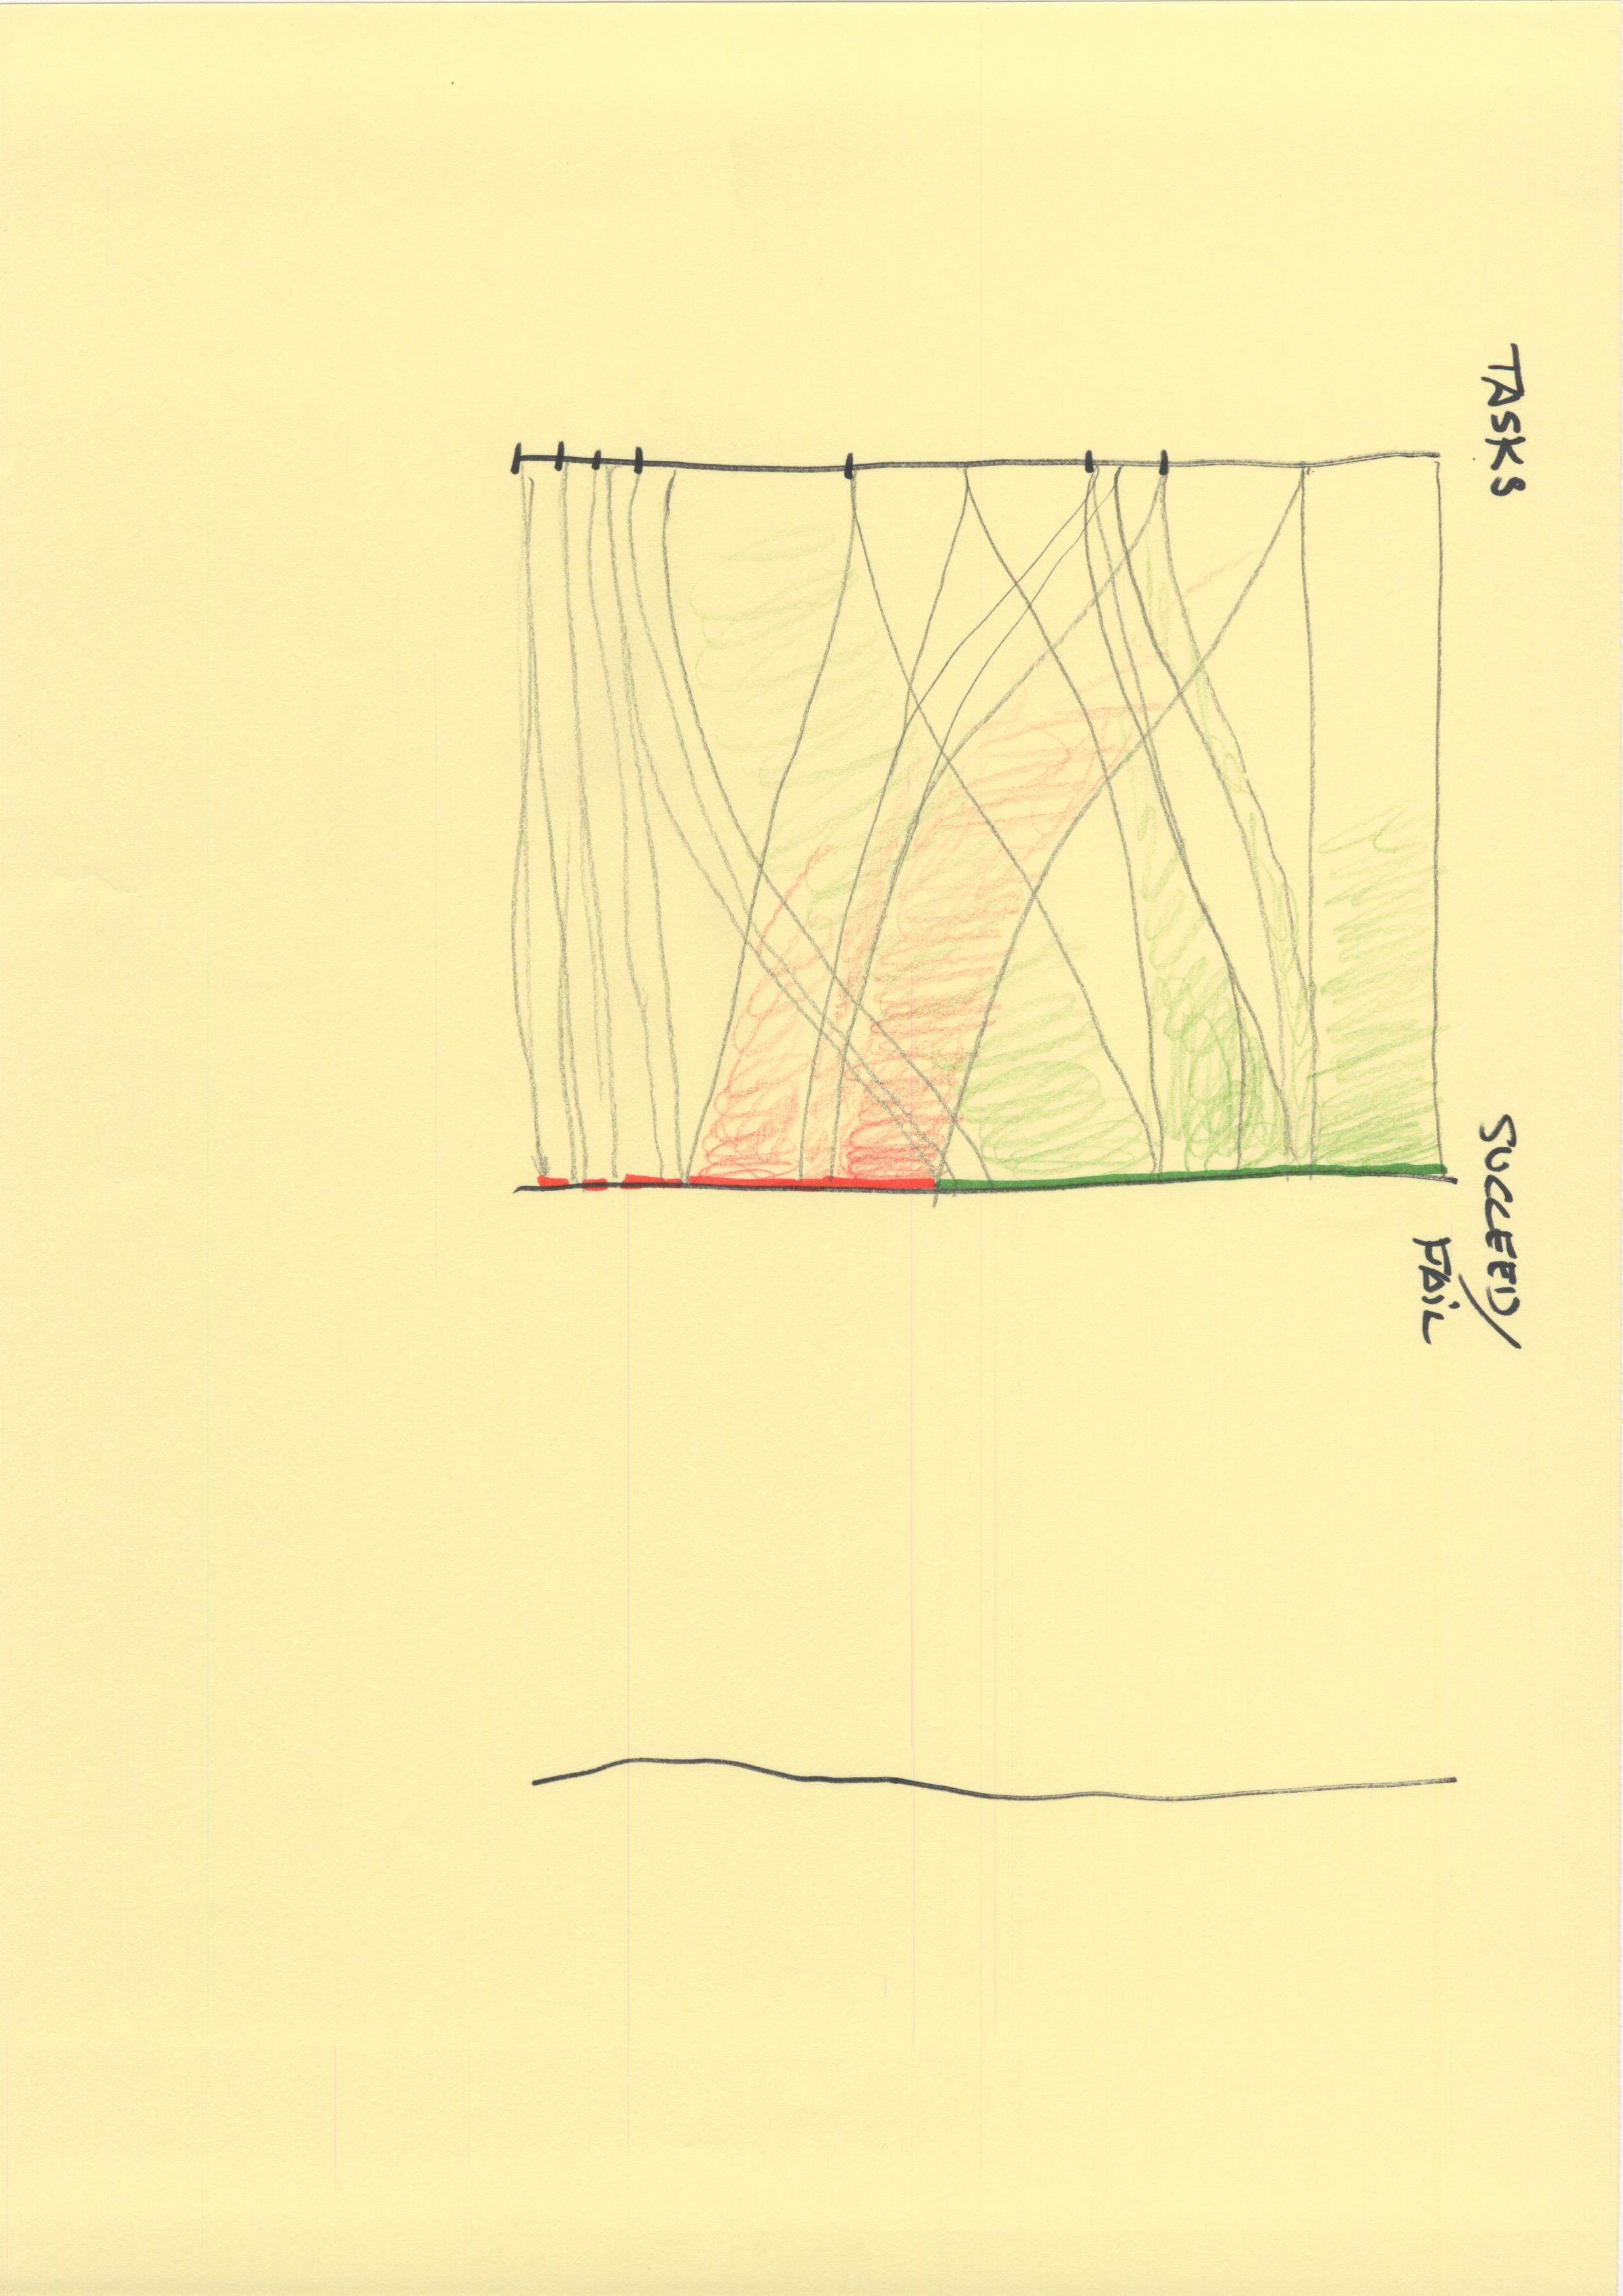 TASKS
SUCCEED/
FAIL